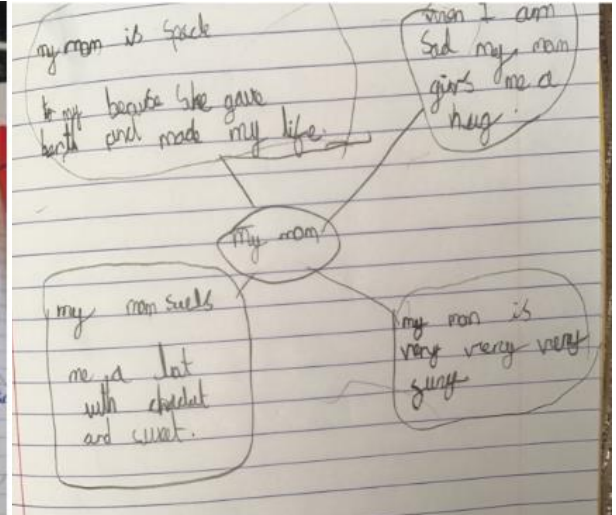 my mom is speck
to my becube she gave
berth and made my life.
when I am
Sad my mom
givs me a
hug.
my mom
my mom suels
me a lot
with choclut
and sweet.
my mom is
very very very